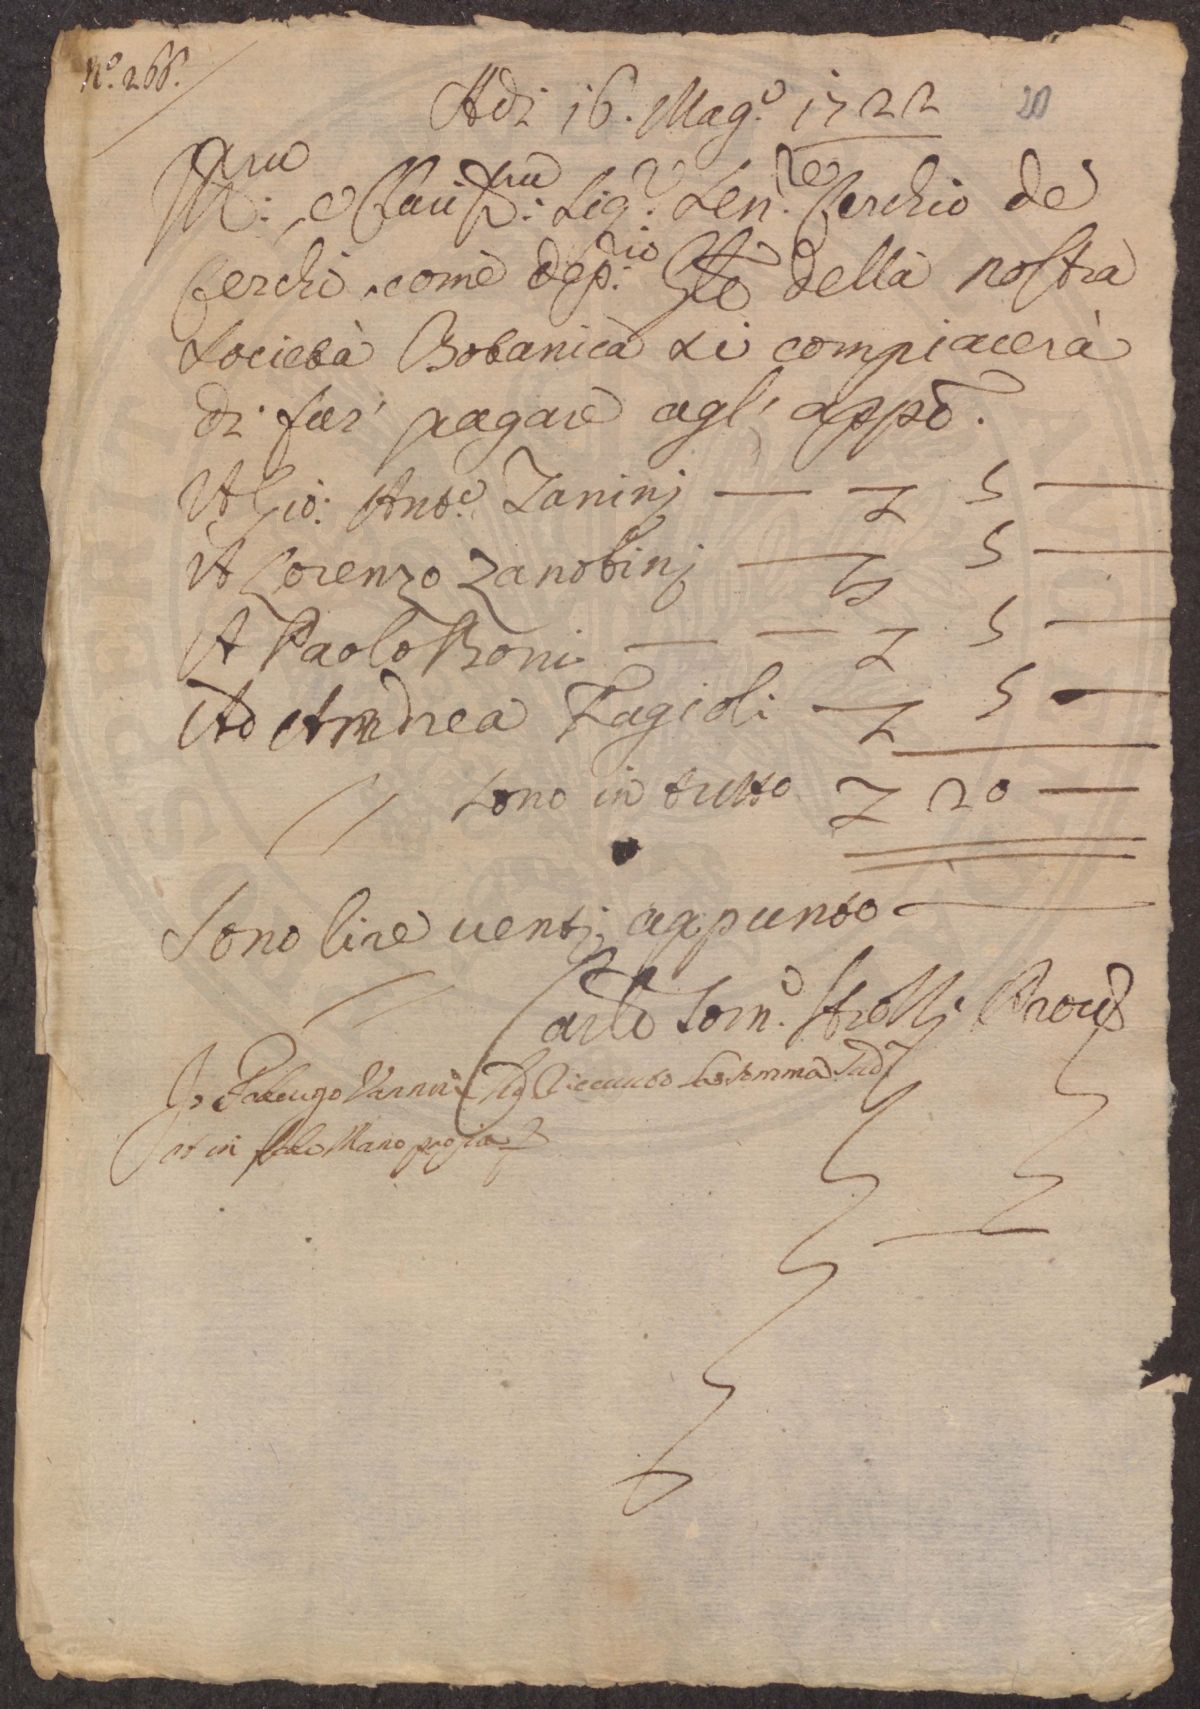 N.º 266.
Adi 16. Mag.º 1722
20
Ill.mo e Clariss.mo Sig.r Sen.re Cerchio de
Cerchi come dep.rio della nostra
Società Botanica si compiacerà
di far pagare agl' appo.
A Gio: Ant.º Zaninj — L 5 —
A Lorenzo Zanobinj — L 5 —
A Paolo Boni — — L 5 —
Ad Andrea Fagioli — L 5 —
sono in tutto L 20 —
Sono lire ventj appunto
Carlo Tom.º Strozzi Prov.
Io Vannini riceuuto la somma sud.
et in mano propia